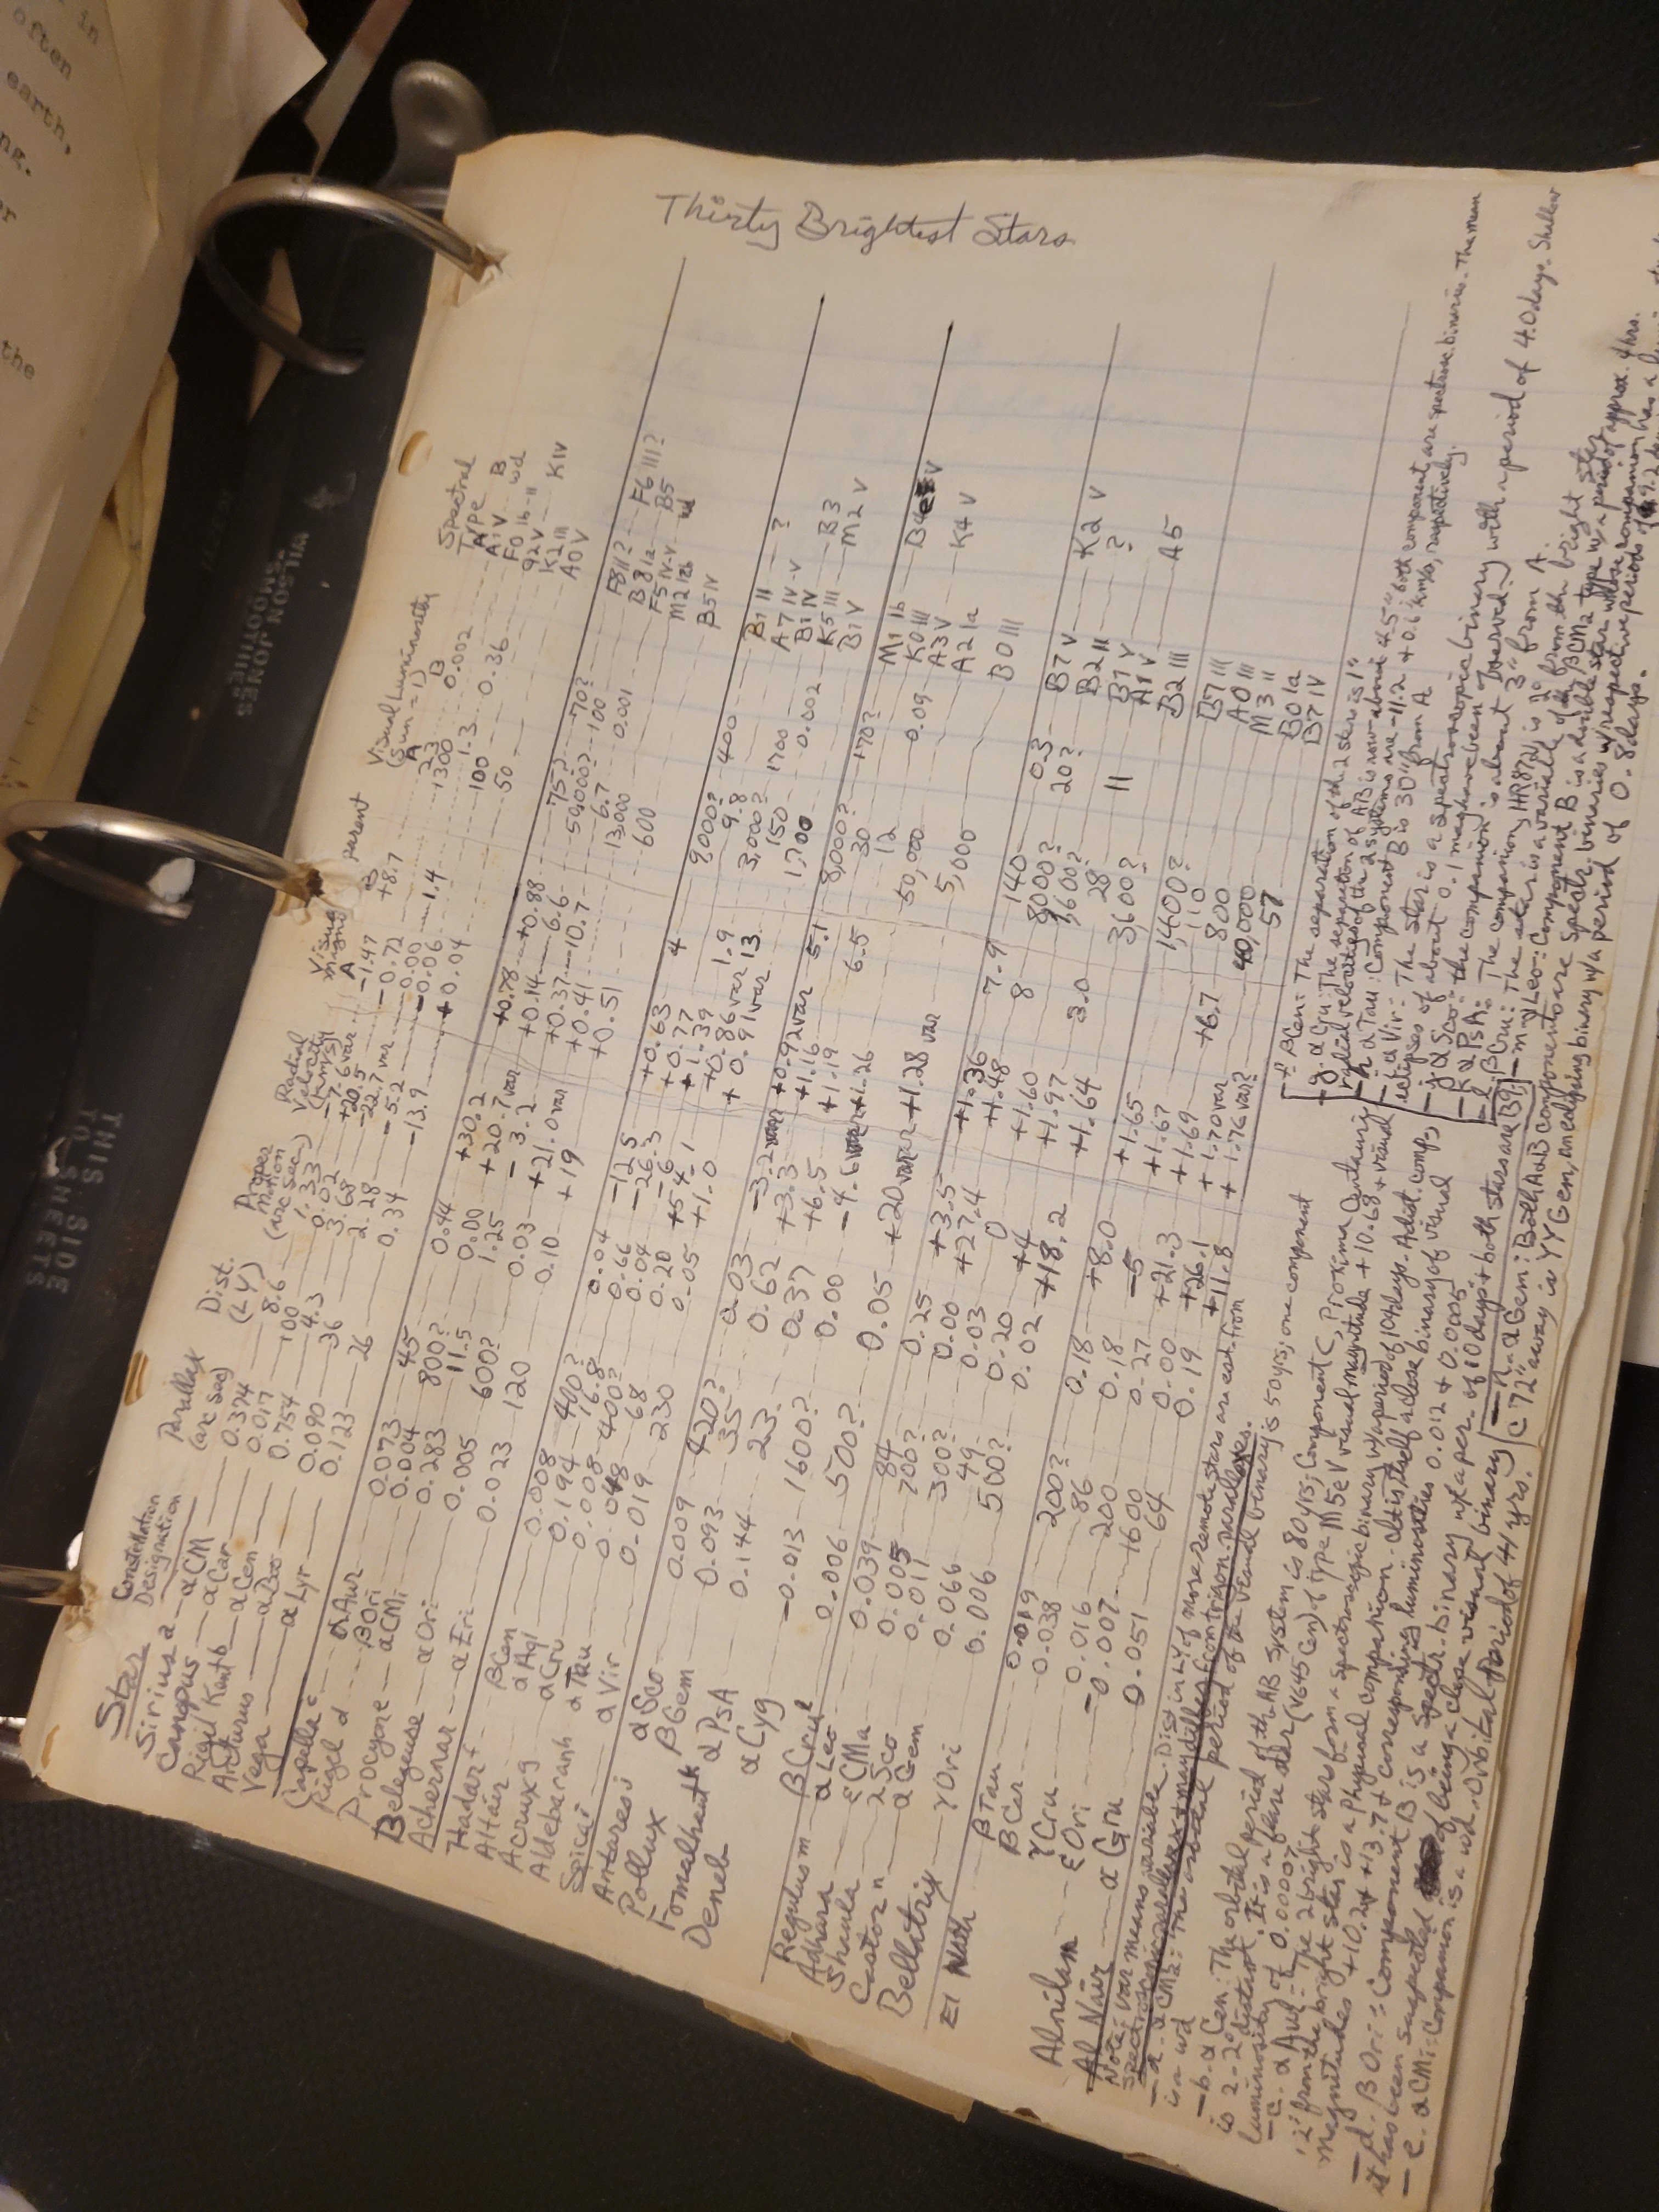 Thirty Brightest Stars
Star Constellation Designation Parallax (arc sec) Dist. (LY) Proper motion (arc sec) Radial Velocity (km/s) Visual Luminosity (Sun = 1) Spectral Type
A B A B A B
Sirius a — αCM — 0.374 — 8.6 — 1.33 — -7.6 var — -1.47 +8.7 — 23 0.002 A1 V wd
Canopus — αCar — 0.017 — 100 — 0.02 — +20.5 — -0.72 — 1300 F0 Ib-II
Rigil Kent b — αCen — 0.754 — 4.3 — 3.68 — -22.7 var — 0.00 1.4 — 1.3 0.36 G2 V K IV
Arturus — αBoo — 0.090 — 36 — 2.28 — -5.2 — -0.06 — 100 K2 III
Vega — αLyr — 0.123 — 26 — 0.34 — -13.9 — +0.04 — 50 A0 V
Capella c αAur 0.073 45 0.44 +30.2 +0.78 +0.88 75? 70? F8 II? F6 III?
Rigel d βOri 0.004 800? 0.00 +20.7 var +0.14 6.6 50,000? 100 B8 Ia B5
Procyon e αCMi 0.283 11.5 1.25 -3.2 +0.37 10.7 6.7 0.001 F5 IV-V wd
Betelgeuse αOri 0.005 600? 0.03 +21.0 var +0.41 13,000 M2 Iab
Achernar αEri 0.023 120 0.10 +19 +0.51 600 B5 IV
Hadar f βCen 0.008 400? 0.04 -12.5 +0.63 4 9000? 400 B1 II ?
Altair αAql 0.194 16.8 0.66 -26.3 +0.77 9.8 A7 IV-V
Acrux g αCru 0.008 400? 0.04 -6 +1.39 1.9 3,000? 1700 B1 IV B3
Aldebaran h αTau 0.048 68 0.20 +54.1 +0.86 var 13 150 0.002 K5 III M2 V
Spica i αVir 0.019 230 0.05 +1.0 +0.91 var 1,700 B1 V
Antares j αSco 0.009 420? 0.03 -3.2 var +0.92 var 5.1 8,000? 170? M1 Ib B4 V
Pollux βGem 0.093 35 0.62 +3.3 +1.16 30 K0 III
Fomalhaut k αPsA 0.144 23 0.37 +6.5 +1.19 6.5 12 0.09 A3 V K4 V
Deneb αCyg -0.013 1600? 0.00 -4.6 var +1.26 50,000 A2 Ia
βCru l 0.006 500? 0.05 +20 var +1.28 var 5,000 B0 III
Regulus m αLeo 0.039 84 0.25 +3.5 +1.36 7.9 140 0.3 B7 V K2 V
Adhara εCMa 0.005 700? 0.00 +27.4 +1.48 8 8000? 20? B2 II ?
Shaula λSco 0.011 300? 0.03 0 +1.60 3,600? B1 V
Castor n αGem 0.066 49 0.20 +4 +1.97 3.0 28 11 A1 V A5
Bellatrix γOri 0.006 500? 0.02 +18.2 +1.64 3600? B2 III
El Nath βTau 0.019 200? 0.18 +8.0 +1.65 1,400? B7 III
βCar 0.038 86 0.18 -5 +1.67 110 A0 III
γCru 0.016 200 0.27 +21.3 +1.69 +6.7 800 M3 II
Alnilam εOri -0.007 1600 0.00 +26.1 +1.70 var 40,000 B0 Ia
Al Nair αGru 0.051 64 0.19 +11.8 +1.76 var? 57 B7 IV
Note: var means variable. Dist in LY of more remote stars are est. from
spectroscopic parallax & may differ from trigon. parallaxes.
— a. αCMa: The orbital period of the visual binary is 50 yrs, one component
is a wd
— b. αCen: The orbital period of the AB system is 80 yrs; Component C, Proxima Centauri,
is 2.2° distant. It is a flare star (V645 Cen) of type M5e V visual magnitude +10.68 + visual
luminosity of 0.00007
— c. αAur: The 2 bright stars form a spectroscopic binary w/ a period of 104 days. A dist. comp.,
12' from the bright star is a physical companion. It is itself a close binary of visual
magnitudes +10.2 & +13.7 & corresponding luminosities 0.012 & 0.0005
— d. βOri: Component B is a spectr. binary w/ a per. of 10 days & both stars are B9
it has been suspected of being a close visual binary
— e. αCMi: Companion is a wd. Orbital period of 41 yrs.
— f. βCen: The separation of the 2 stars is 1"
— g. αCru: The separation of AB is now about 4.5". Both component are spectrosc. binaries. The mean
radial velocities of the 2 systems are -11.2 & +0.6 km/s, respectively.
— h. αTau: Component B is 30" from A
— i. αVir: The star is a spectroscopic binary with a period of 4.0 days. Shallow
eclipses of about 0.1 mag have been observed.
— j. αSco: the companion is about 3" from A
— k. αPsA: The companion, HR8721 is 2° from the bright star
— l. βCru: The star is a variable of the βCMa type w/ a period of approx. 4 hrs.
— m. αLeo: Component B is a double star whose companion has a
— n. αGem: Both A & B components are spectr. binaries w/ respective periods of 9.2
C 72" away is YY Gem, an eclipsing binary w/ a period of 0.8 days.
in
often
earth,
ng.
er
the
WILSON JONES
"SMOOTHIES"
THIS SIDE
TO SHEETS